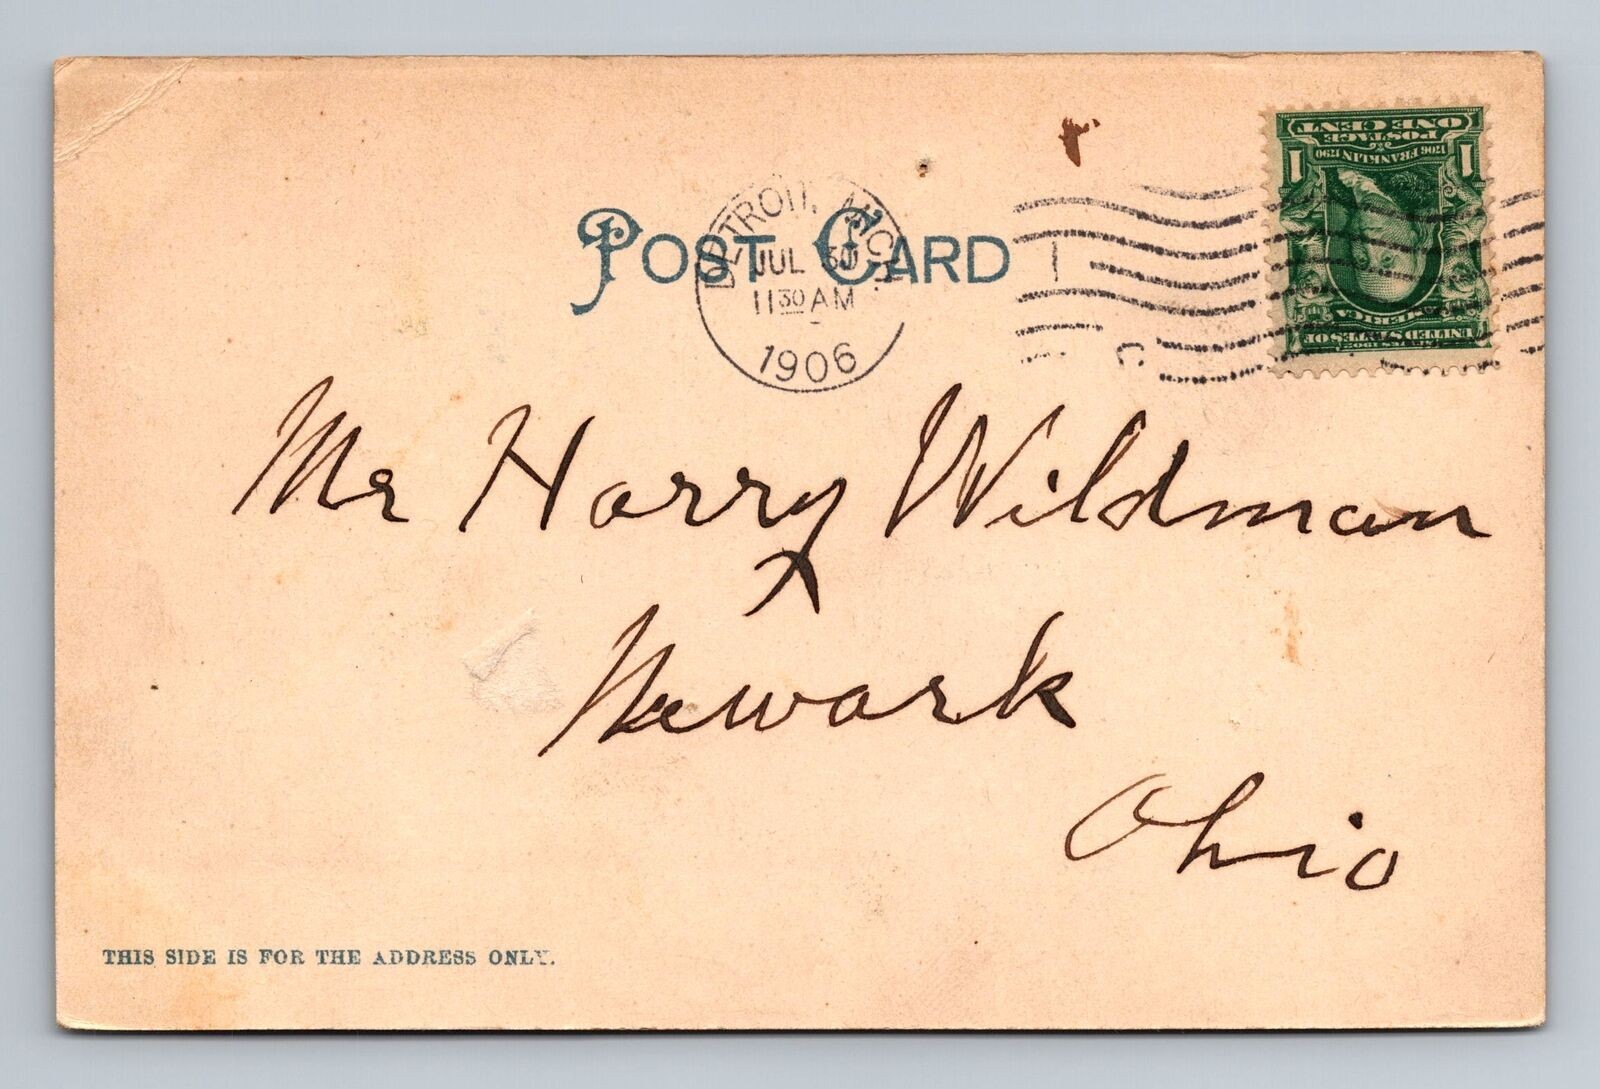 POST CARD
DETROIT, MICH.
JUL 30
11 30 AM
1906
C
ONE CENT
POSTAGE
1706 FRANKLIN 1790
1 1
SERIES 1902
UNITED STATES OF
AMERICA
Mr Harry Wildman
Newark
Ohio
THIS SIDE IS FOR THE ADDRESS ONLY.